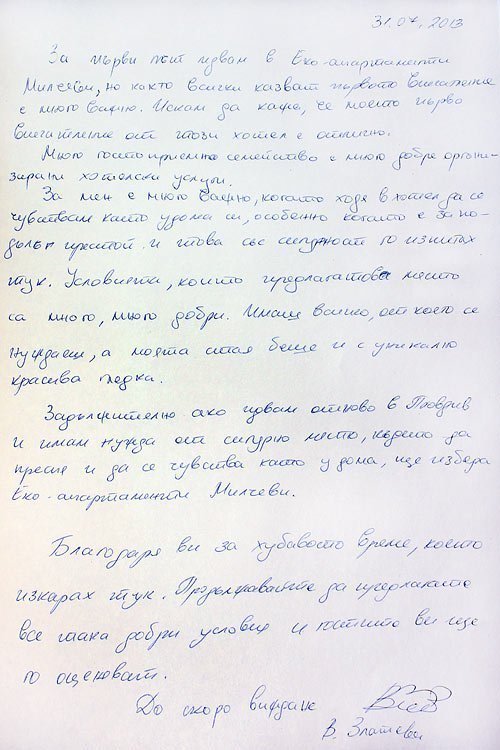 31.07.2013
За първи път идвам в Еко-апартаменти
Милчеви, но както всички казват първото впечатление
е много важно. Искам да кажа, че моето първо
впечатление от този хотел е отлично.
Много гостоприемно семейство с много добре органи-
зирани хотелски услуги.
За мен е много важно, когато ходя в хотел да се
чувствам като у дома си, особено когато е за по-
дълъг престой и това със сигурност го изпитах
тук. Условията, които предлага това място
са много, много добри. Имаш всичко, от което се
нуждаеш, а моята стая беше и с уникално
красива гледка.
Задължително ако идвам отново в Пловдив
и имам нужда от сигурно място, където да
преспя и да се чувства като у дома, ще избера
Еко-апартаменти Милчеви.
Благодаря ви за хубавото време, което
изкарах тук. Продължавайте да предлагате
все така добри условия и гостите ви ще
го оценяват.
До скоро виждане
В. Златева